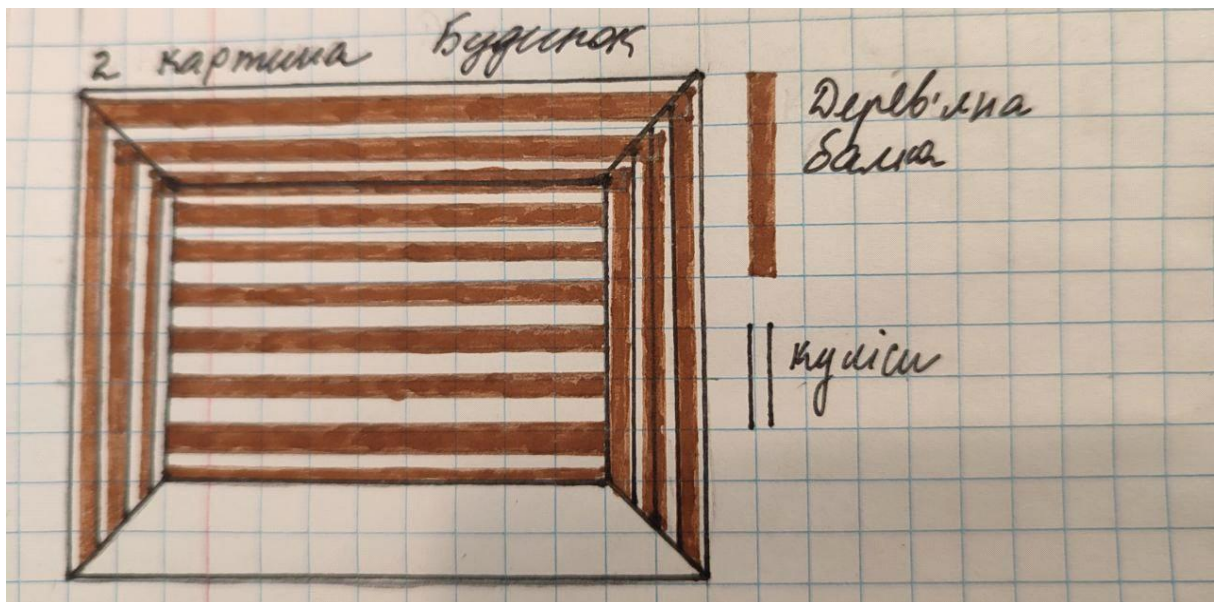 2 картина Будинок
Дерев'яна
балка
куліси